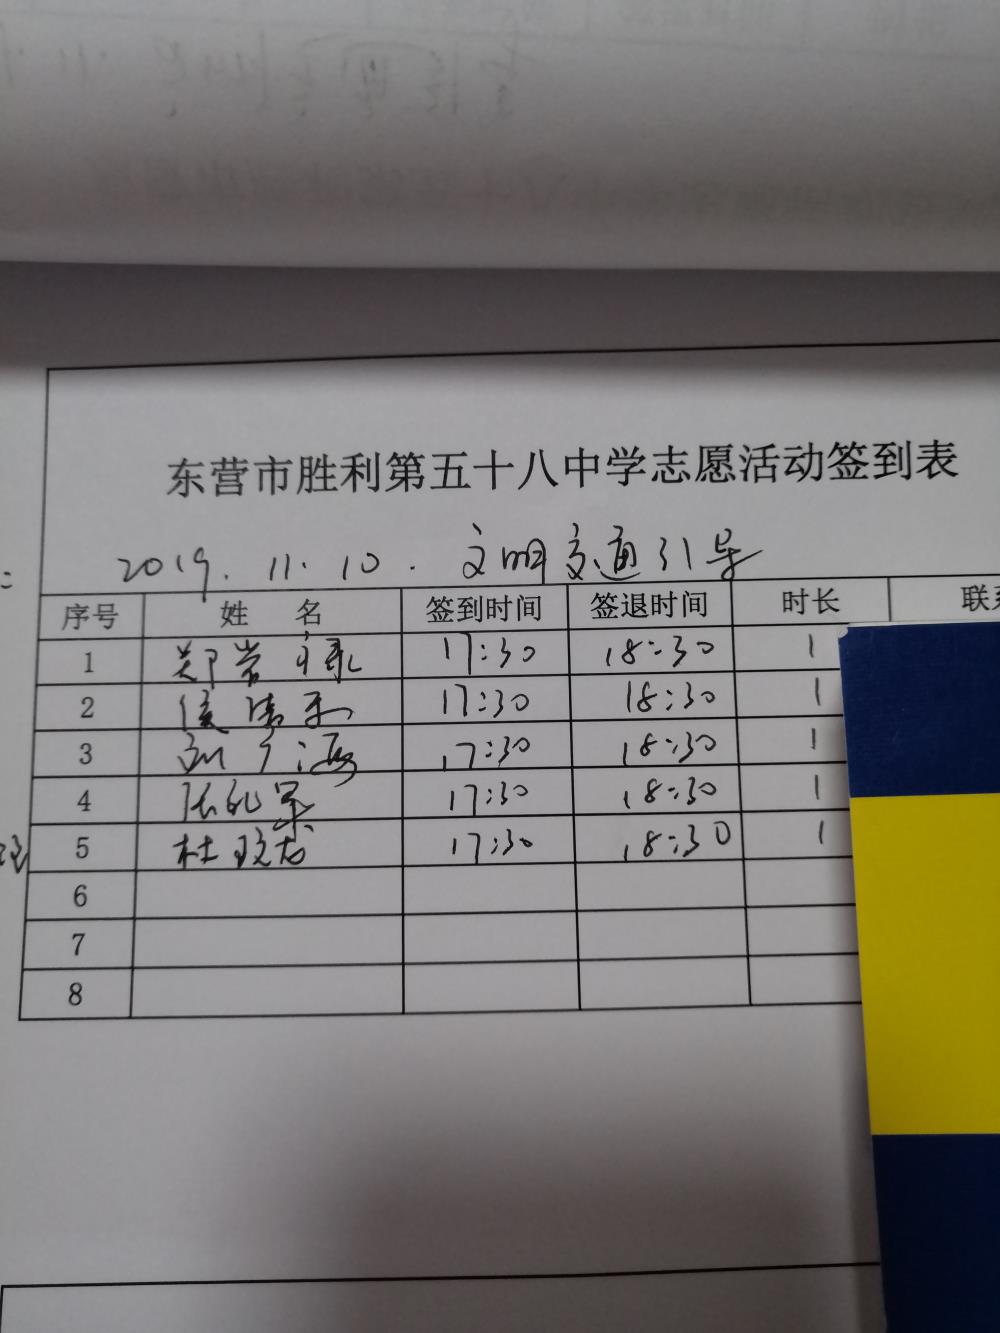 东营市胜利第五十八中学志愿活动签到表
2019.11.10. 文明交通引导
序号 姓 名 签到时间 签退时间 时长 联系
1 17:30 18:30 1
2 17:30 18:30 1
3 17:30 18:30 1
4 17:30 18:30 1
5 杜政龙 17:30 18:30 1
6
7
8